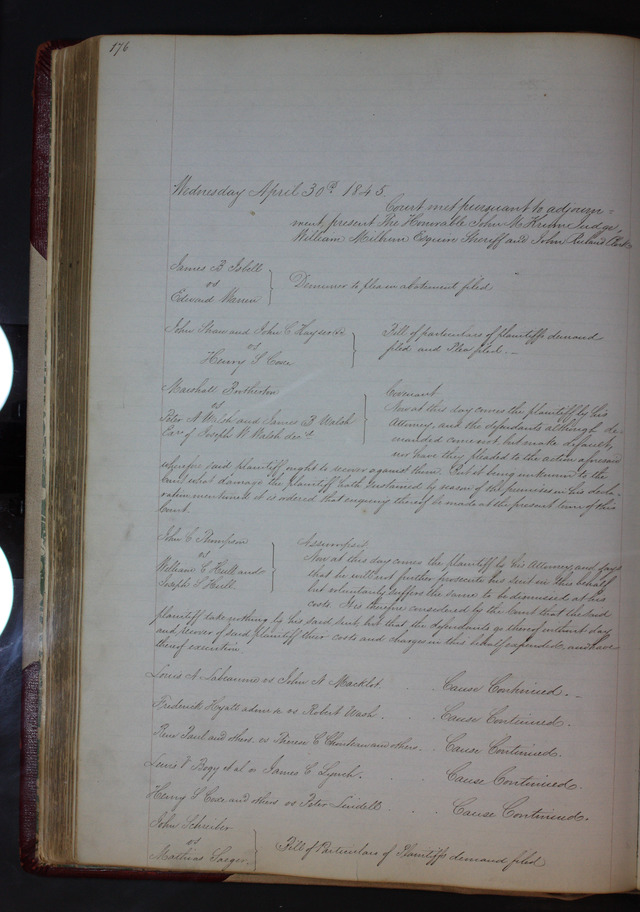 176
Wednesday April 30th 1845.
Court met pursuant to adjourn=
ment, present The Honorable John M. Krum Judge,
William Milburn Esquire Sheriff and John Ruland Clerk
James B Isbell
vs
Edward Warren
Demurrer to plea in abatement filed
John Shaw and John C
vs
Henry S Coxe
Bill of particulars of plaintiffs demand
filed and Plea filed. -
Marshall Brotherton
vs
Peter A Walsh and James B Walsh
Exrs of Joseph W Walsh decd
Covenant
Now at this day comes the plaintiff by his
Attorney, and the defendants although de=
manded come not but make default,
nor have they pleaded to the action aforesaid
wherefore said plaintiff ought to recover against them. But it being unknown to the
Court what damage the plaintiff hath sustained by reason of the premises in his decla=
ration mentioned it is ordered that enquiry thereof be made at the present term of this
Court.
John C Thompson
vs
William C Hull and
Joseph S Hull
Assumpsit
Now at this day comes the plaintiff by his Attorney, and says
that he will not further prosecute his suit in this behalf
but voluntarily suffers the same to be dismissed at his
costs. It is therefore considered by the Court that the said
plaintiff take nothing by his said suit but that the defendants go thereof without day
and recover of said plaintiff their costs and charges in this behalf expended, and have
thereof execution.
Louis A Labeaume vs John N Macklot. . . Cause Continued. -
Frederick Hyatt vs Robert Wash . . Cause Continued.
Rene Paul and others. vs Theron C and others. . . Cause Continued.
Louis V Bogy et al vs James C Lynch. . . Cause Continued.
Henry S Coxe and others vs Peter Lindell . . Cause Continued.
John Schreiber
vs
Mathias Saeger
Bill of Particulars of Plaintiffs demand filed